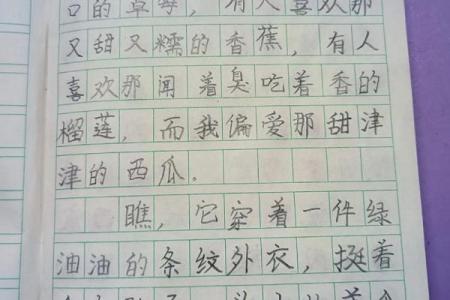 口的草莓，有人喜欢那
又甜又糯的香蕉，有人
喜欢那闻着臭吃着香的
榴莲，而我偏爱那甜津
津的西瓜.
瞧，它穿着一件绿
油油的条纹外衣，挺着